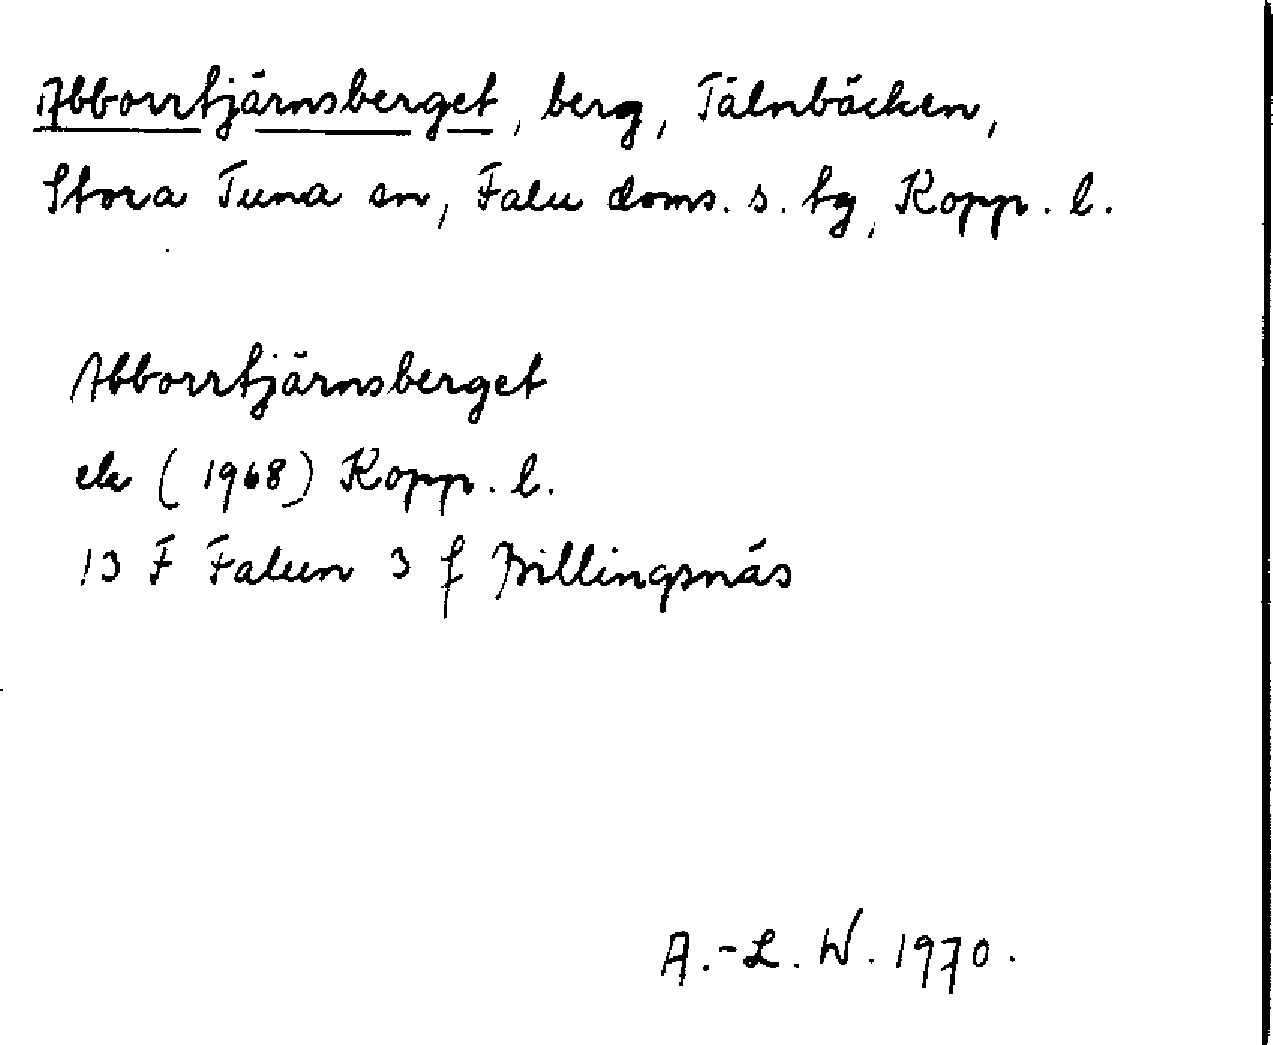 Abborrtjärnsberget, berg, Tälnbäcken,
Stora Tuna sn, Falu doms. s. tg, Kopp. l.
Abborrtjärnsberget
ek (1968) Kopp. l.
13 F Falun 3 f Billingsnäs
A.-L. W. 1970.